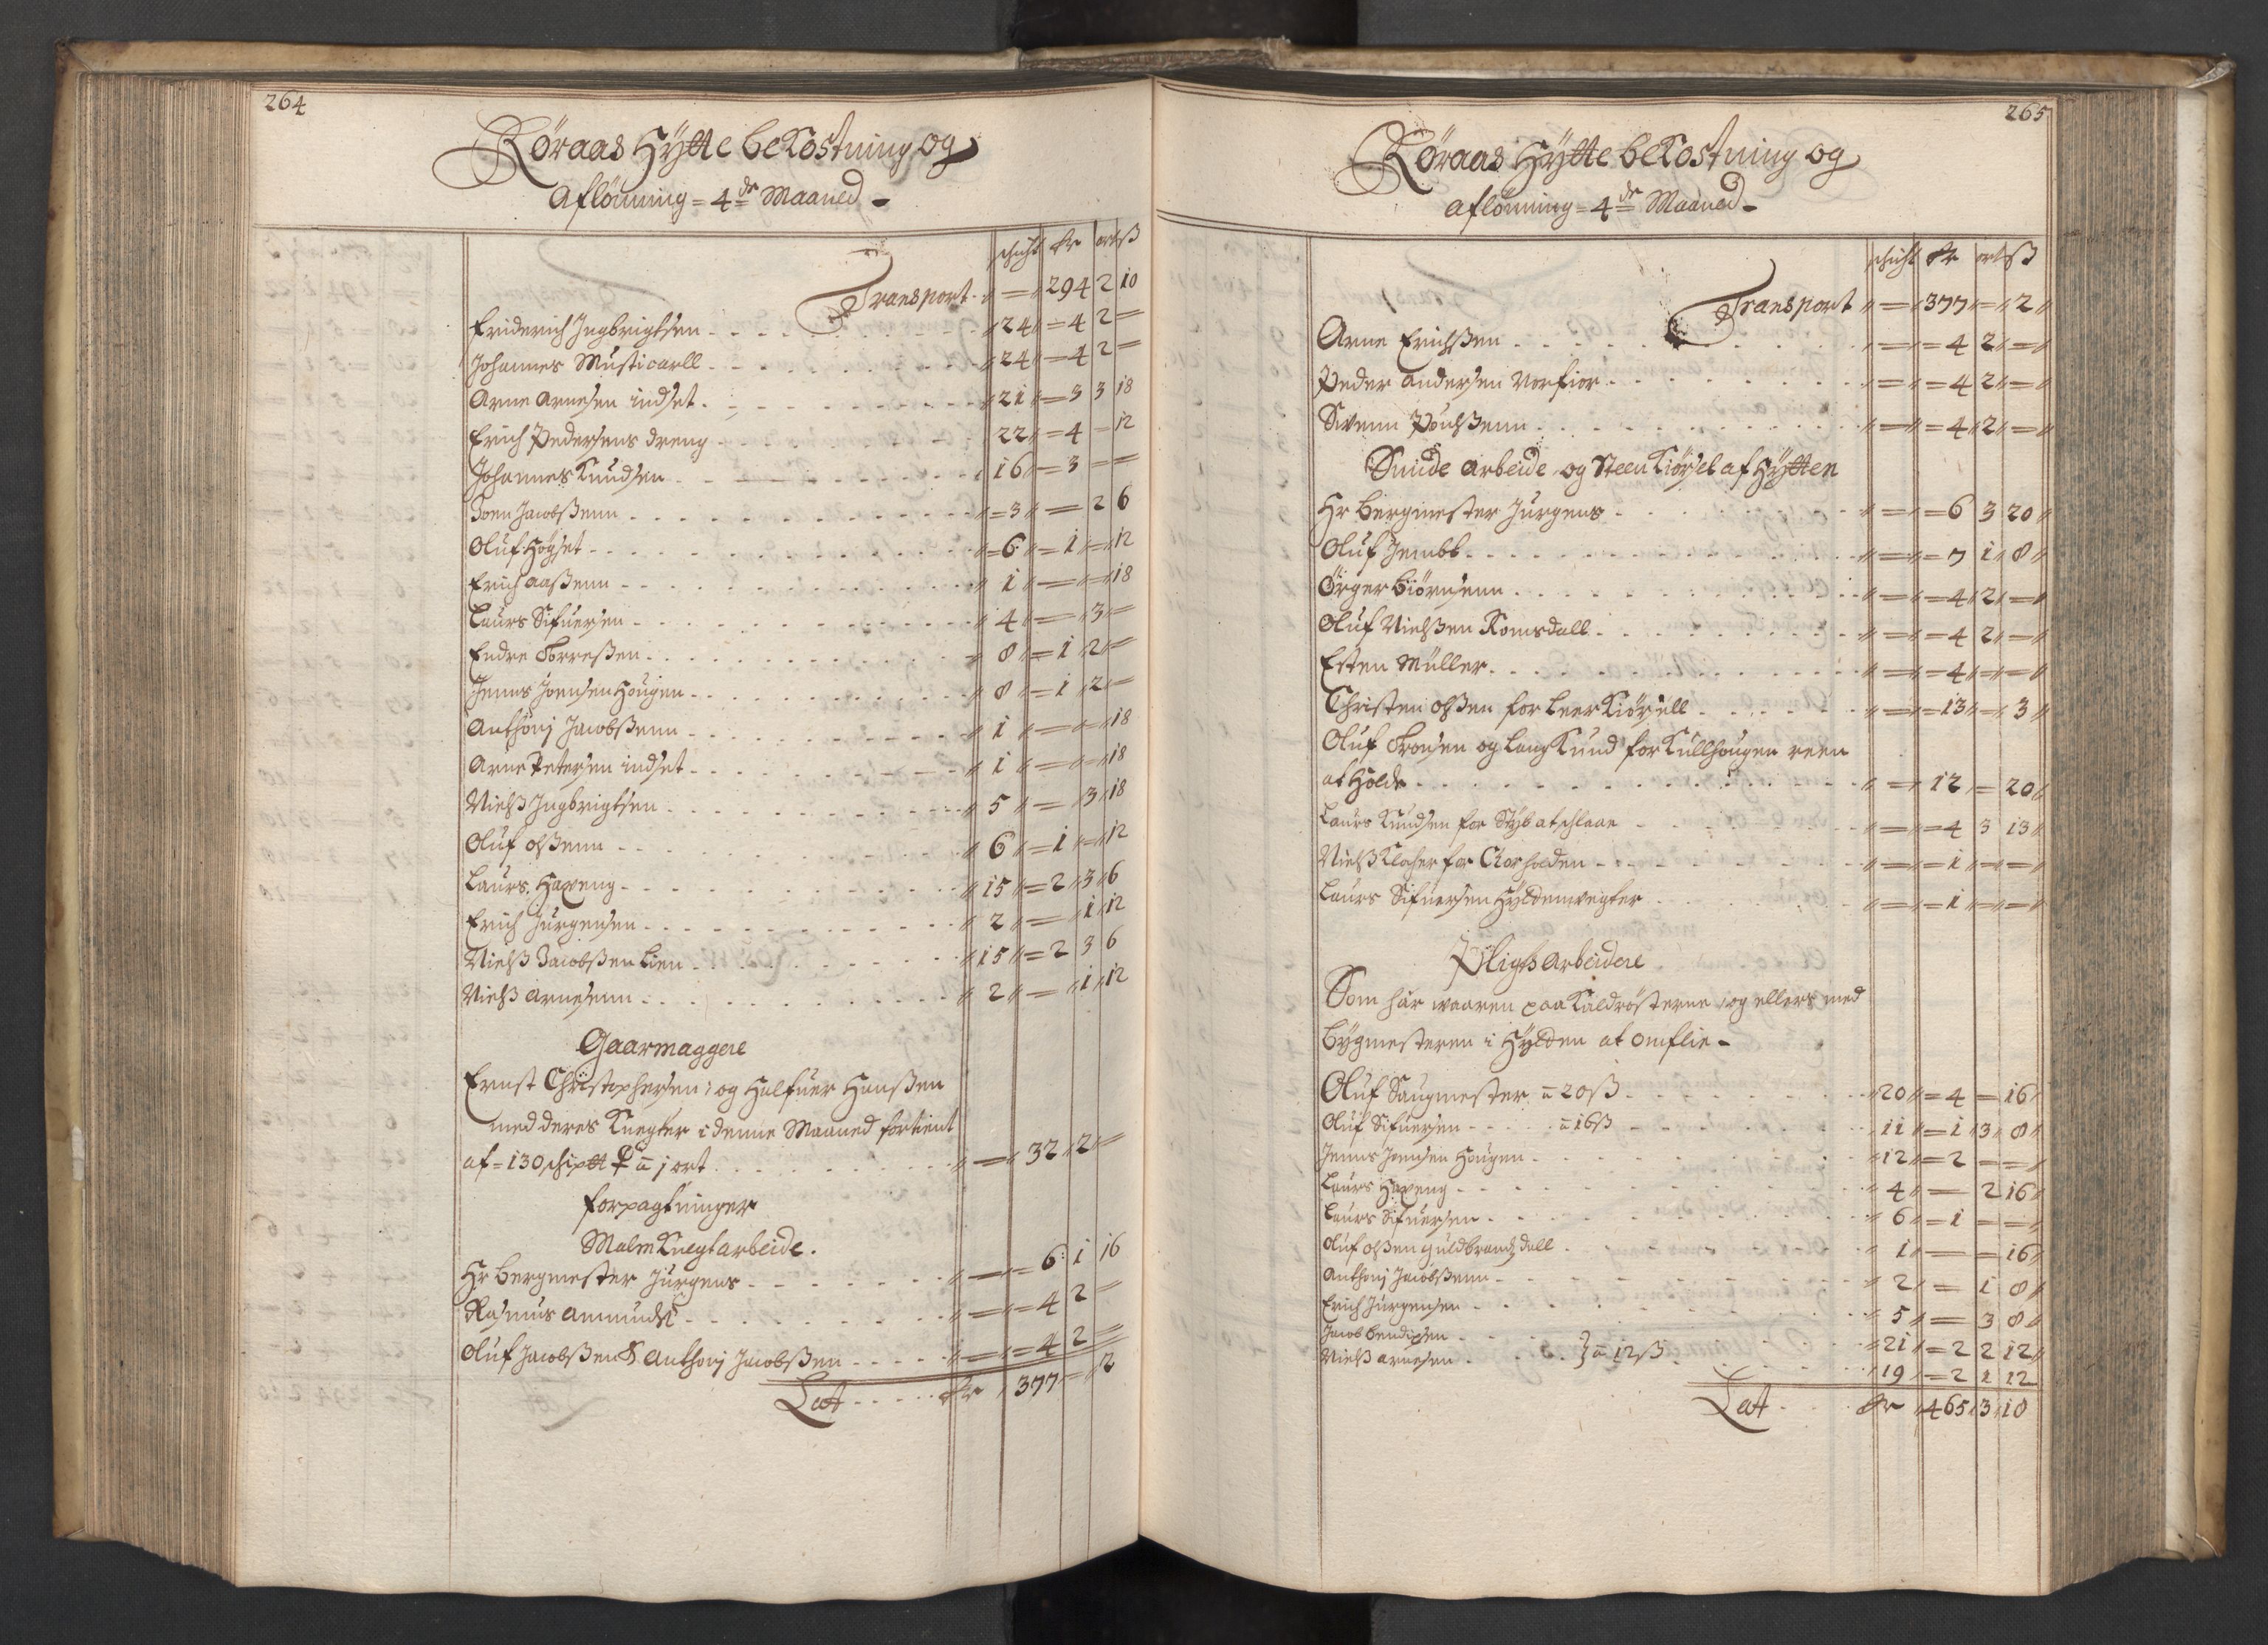 264
Röraas Hÿtte beKostning og
Aflönning = 4de Maaned -
schicht Rr ort ß
Transport - " = " 294 2 10
Friderich Ingbrigtsen - - - "24" = 4 2 =
Johannes Musticarll - - - "24" = 4 2 =
Arne Arnesen indset - - - "21" = 3 3 18
Erich Pedersens dreng - - - 22" = 4 = 12
Johannes Knudsen - - - 16" = 3 = =
Joen Jacobßenn - - - " = 3" = 2 6
Oluf Högset - - - " = 6" = 1 " = " 12
Erich aaßenn - - - " 1 " = " = " 18
Laurs Sifuersen - - - " 4 " = " 3 " =
Endre Torreßen - - - " 8 " = 1 " 2 " =
Jenns Joensen Hougen - - - " 8 " = 1 " 2 " =
Anthonj Jacobßenn - - - " 1 " = " = " 18
Arne Petersen indset - - - " 1 " = " = " 18
Nielß Ingbrigtsen - - - " 5 " = " 3 " 18
Oluf olßenn - - - " 6 " = 1 " = " 12
Laurs Haxeng - - - " 15 " = 2 " 3 " 6
Erich Jürgensen - - - " 2 " = " 1 " 12
Nielß Jacobßen Lien - - - " 15 " = 2 3 6
Nielß Arnesenn - - - " 2 " = " 1 " 12
Gaarmaggere
Ernst Christophersen, og Halfuer Hanßen
med deres Knegter i denne Maaned fortient
af = 130 schip℔ à j ort - - - " = " 32 " 2 " =
forpagtninger
Malm Knegt arbeide.
Hr Bergmester Jürgens - - - " = " = 6 : 1 16
Rasmus Ammunds - - - " = " = 4 2 =
Oluf Jacobßen & Anthonj Jacobßen - - - " = " = 4 2 =
Lat - - - Rr " 377 " = " 2
265
Röraas Hÿtte beKostning og
aflönning = 4de Maaned -
schicht Rr ort ß
Transport " = " 377 " = " 2 "
Arne Erichßen - - - " = " = 4 2 " = "
Peder andersen Vorfior - - - " = " = 4 2 " = "
Svenn Poulßenn - - - " = " = 4 " 2 " = "
Smide arbeide og Steen Kiörsel af Hÿtten
Hr Bergmester Jürgens - - - " = " = 6 3 20 "
Oluf Jembt - - - " = " = 7 1 " 8 "
Örger Biörnsenn - - - " = " = 4 " 2 " = "
Oluf Nielßen Romsdall - - - " = " = 4 2 " = "
Esten Müller - - - " = " = 4 " = " = "
Christen olßen for Leer Kiörsell - - - " = " = 13 " = " 3 "
Oluf Tronsen og Lang Knud for Kullhougen reen
at Holde - - - " = " 12 " = 20 "
Laurs Knudsen for Stÿb at schlaae - - - " = " = 4 3 13 "
Nielß Klocher for Clor holden - - - " = " = 1 " = " = "
Laurs Sifuersen Hÿttenwegter - - - " = " = 1 " = " = "
Pligts arbeidere
Som har waaren paa Kaldrösterne, og ellers med
Bÿgmesteren i Hÿtten at omflie -
Oluf Saugmester à 20 ß - - - " 20 " = 4 = 16
Oluf Sifuersen - - - à 16 ß - - - 11 " = 1 " 3 " 8 "
Jenns Joensen Hougen - - - " 12 " = 2 = = "
Laurs Haxeng - - - " 4 " = 2 16 "
Laurs Sifuersen - - - " 6 " = 1 = = "
Oluf olßen guldbrandsdall - - - " 1 " = = 16 "
Anthonj Jacobßenn - - - " 2 " = 1 8 "
Erich Jürgensen - - - " 5 " = 3 8 "
Jacob Bendixsen - - - " 21 " = 2 2 12 "
Nielß arnesen - - - } à 12 ß - - - " 19 " = 2 1 12
Lat - - - Rr " 465 " 3 " 10